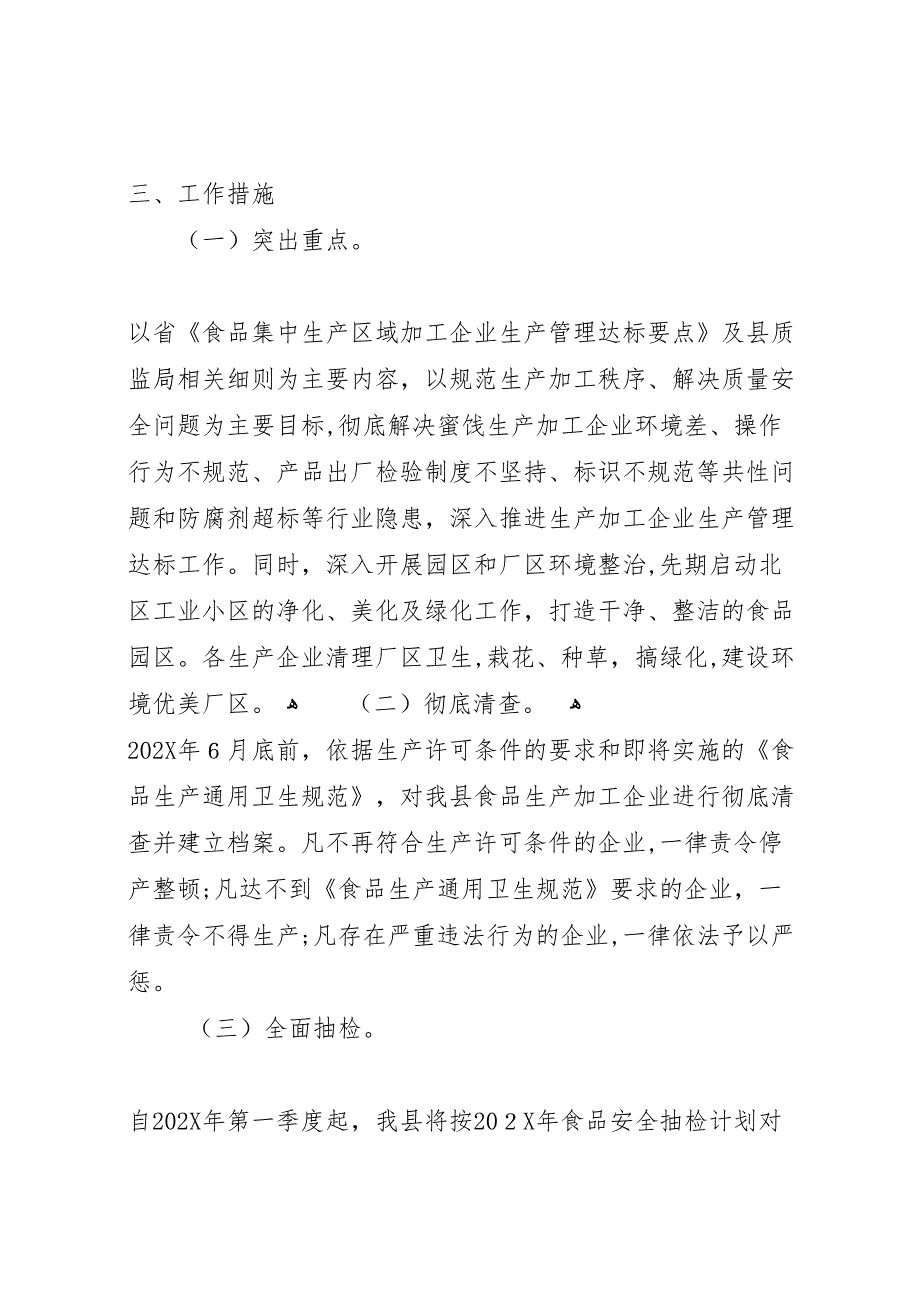 三、工作措施
（一）突出重点。
以省《食品集中生产区域加工企业生产管理达标要点》及县质
监局相关细则为主要内容，以规范生产加工秩序、解决质量安
全问题为主要目标,彻底解决蜜饯生产加工企业环境差、操作
行为不规范、产品出厂检验制度不坚持、标识不规范等共性问
题和防腐剂超标等行业隐患，深入推进生产加工企业生产管理
达标工作。同时，深入开展园区和厂区环境整治,先期启动北
区工业小区的净化、美化及绿化工作，打造干净、整洁的食品
园区。各生产企业清理厂区卫生,栽花、种草，搞绿化,建设环
境优美厂区。 ﻫ （二）彻底清查。 ﻫ
202X年６月底前，依据生产许可条件的要求和即将实施的《食
品生产通用卫生规范》，对我县食品生产加工企业进行彻底清
查并建立档案。凡不再符合生产许可条件的企业,一律责令停
产整顿;凡达不到《食品生产通用卫生规范》要求的企业，一
律责令不得生产;凡存在严重违法行为的企业,一律依法予以严
惩。
（三）全面抽检。
自202X年第一季度起，我县将按20２X年食品安全抽检计划对